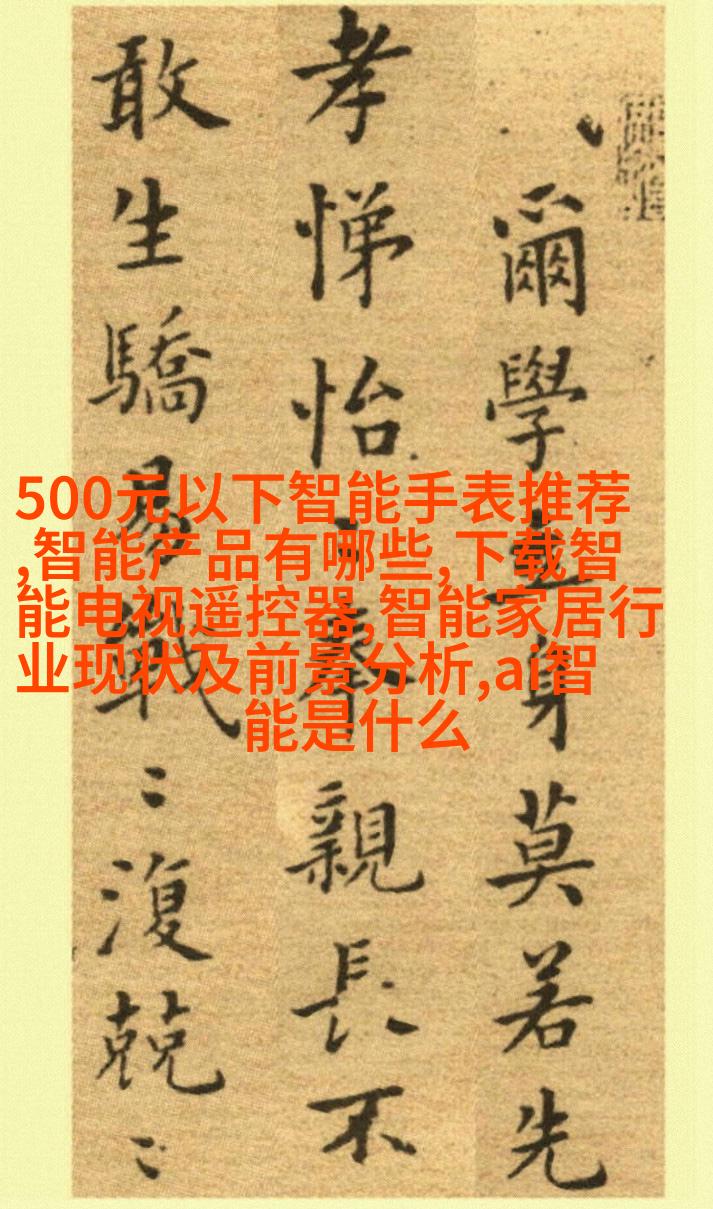 爾學立身莫若先
孝悌怡奉親長不
敢生驕易戰〻復兢〻
500元以下智能手表推荐
,智能产品有哪些,下载智
能电视遥控器,智能家居行
业现状及前景分析,ai智
能是什么